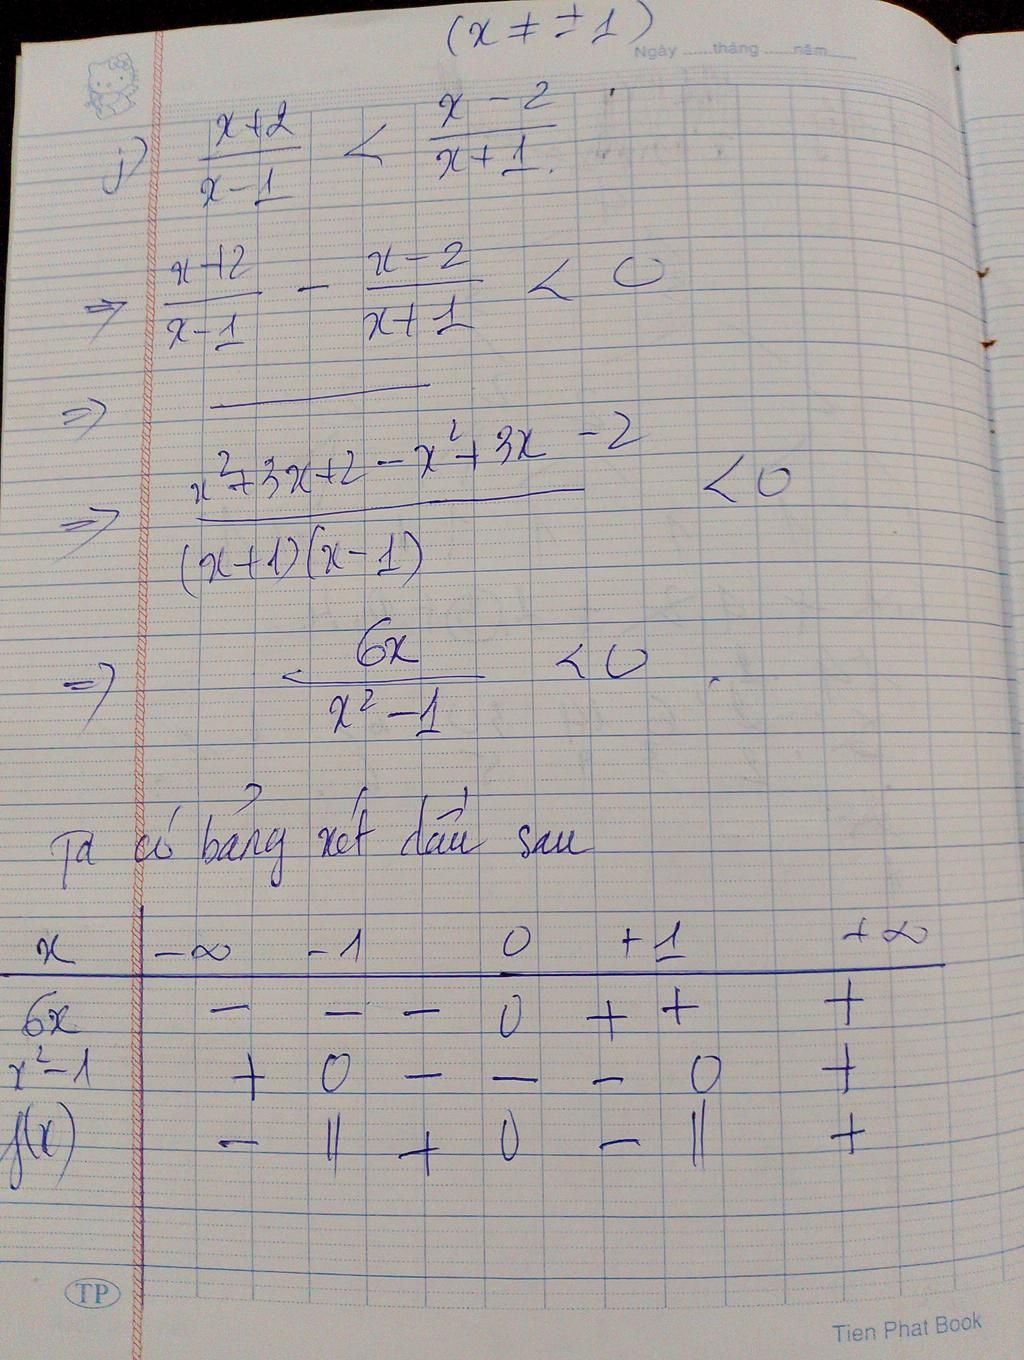 (x ≠ ±1)
Ngày ......tháng ......năm......
j) \frac{x+2}{x-1} < \frac{x-2}{x+1}
=> \frac{x+2}{x-1} - \frac{x-2}{x+1} < 0
=>
=> \frac{x²+3x+2-x²+3x-2}{(x+1)(x-1)} < 0
=> \frac{6x}{x²-1} < 0
Ta có bảng xét dấu sau
x -∞ -1 0 +1 +∞
6x - - - 0 + + +
x²-1 + 0 - - - 0 +
f(x) - || + 0 - || +
TP
Tien Phat Book